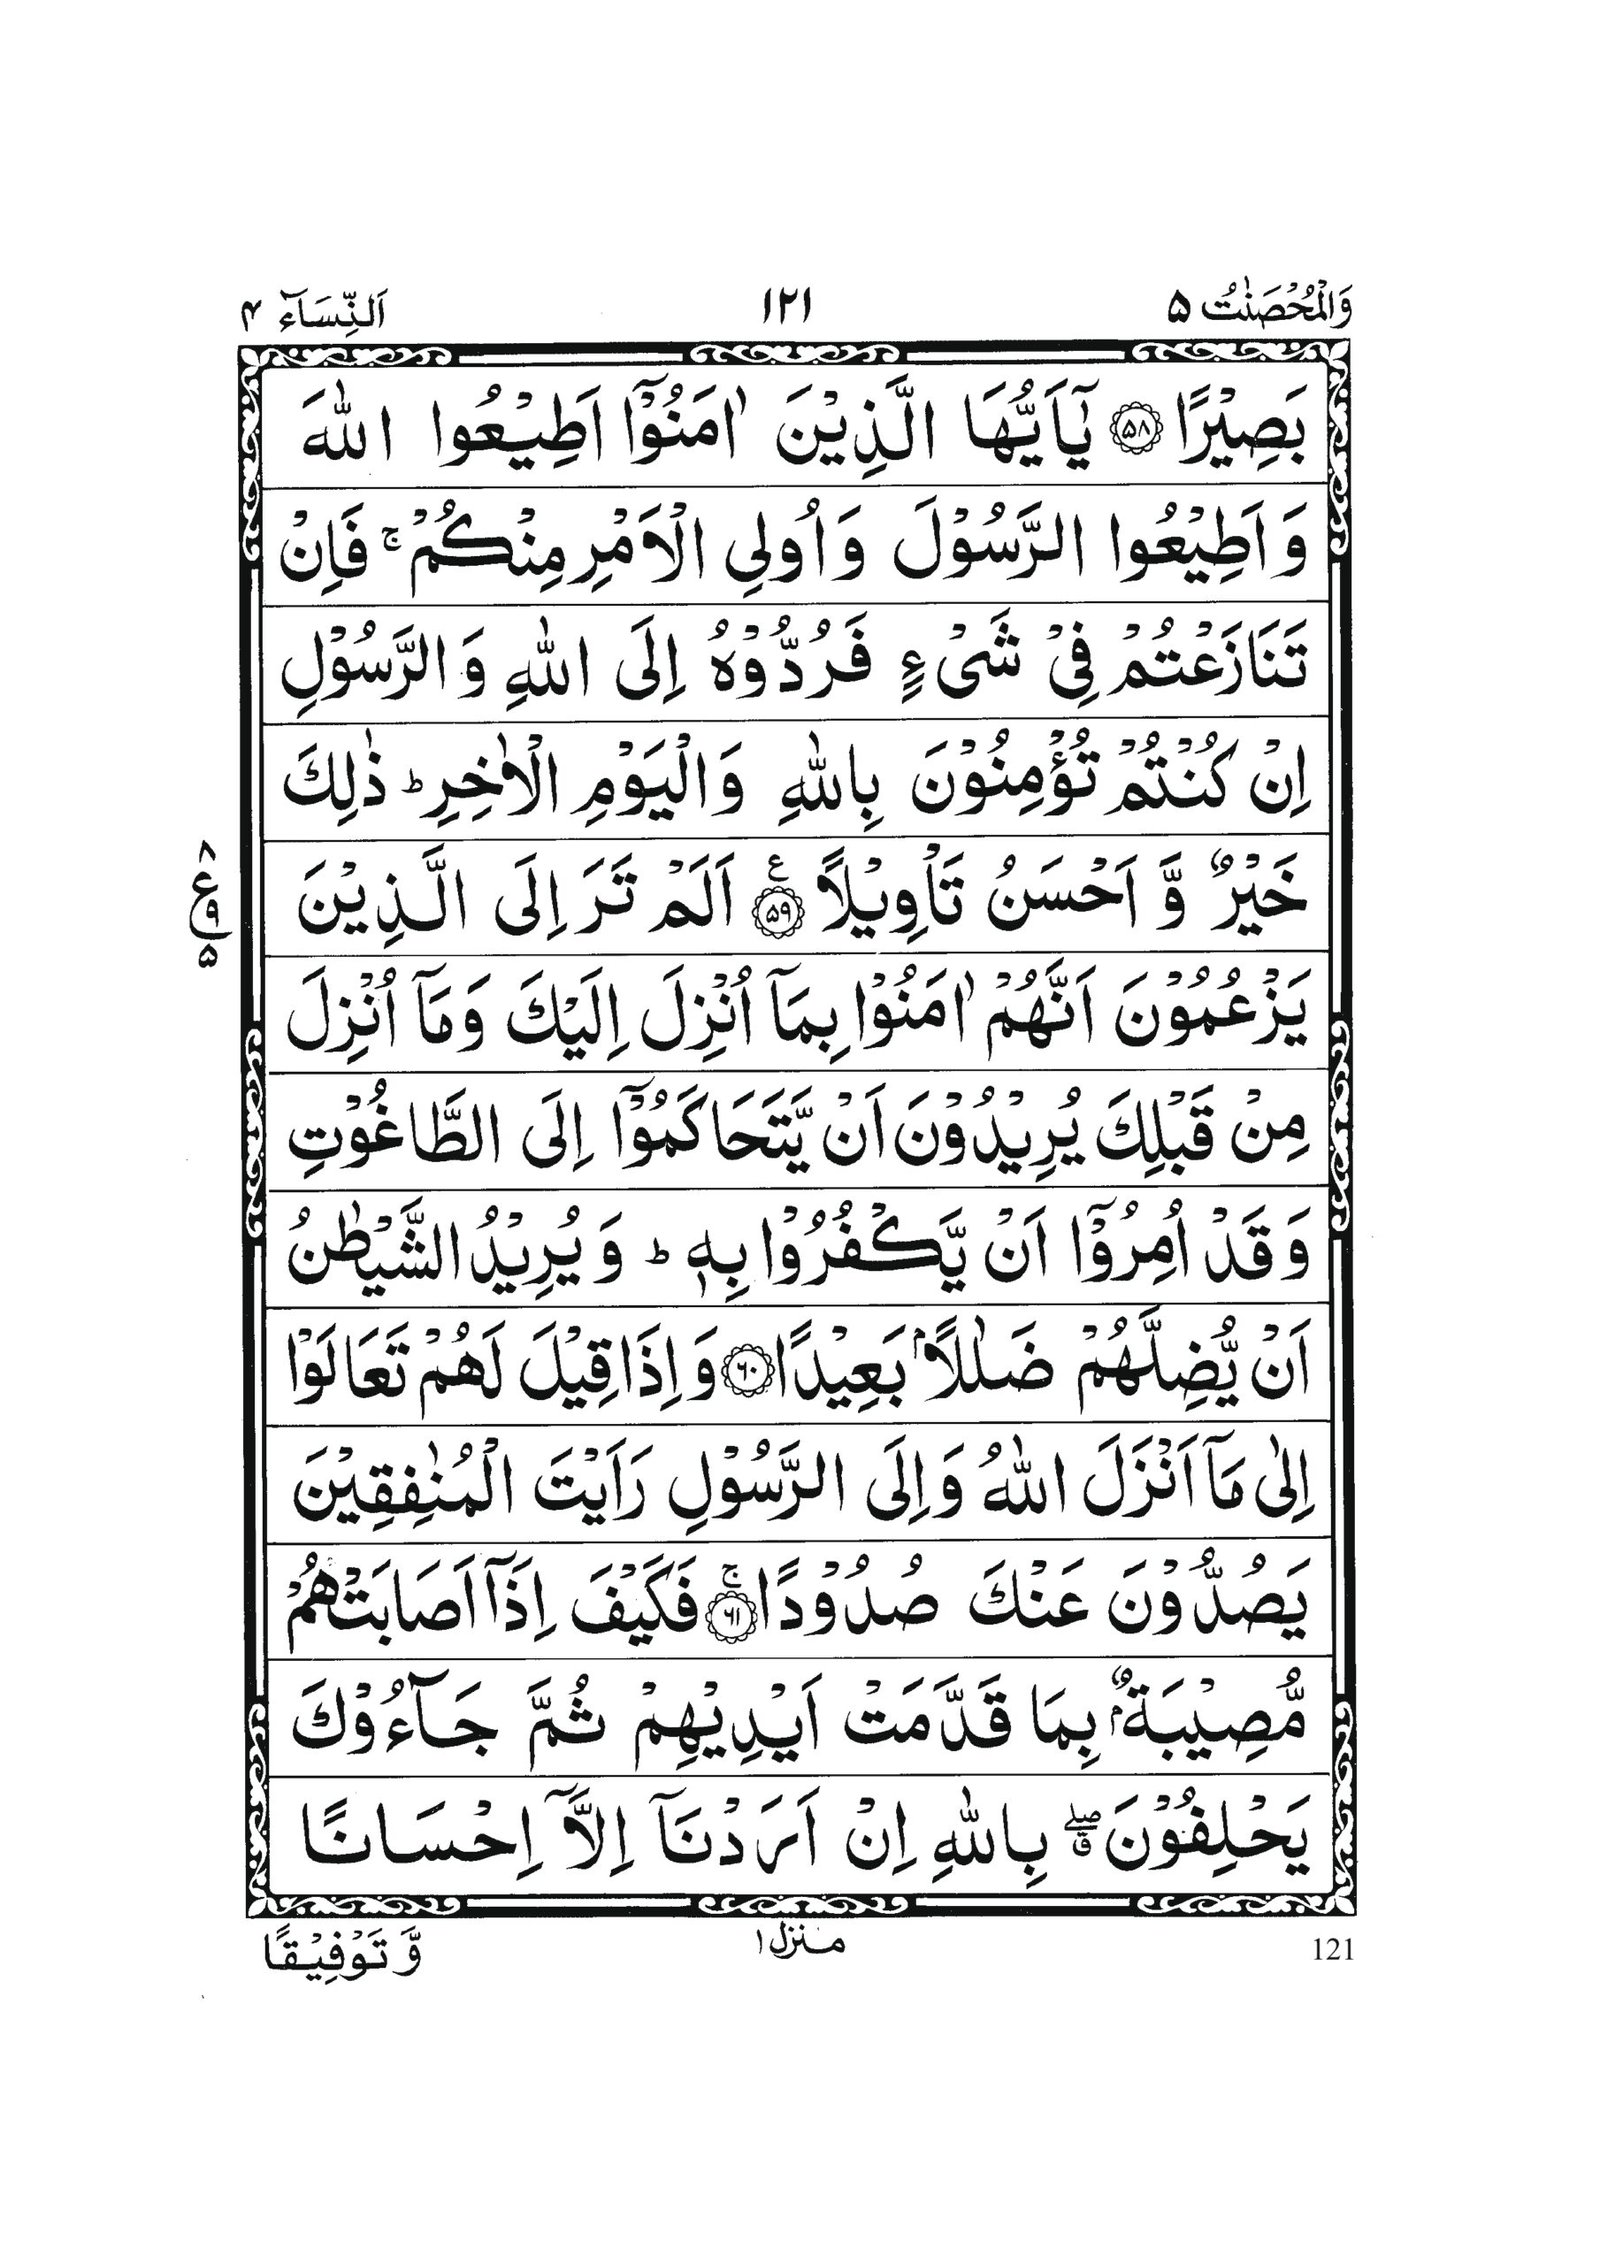 وَالْمُحْصَنٰتُ ۵ ١٢١ اَلنِّسَآء ۴
بَصِيْرًا ۵۸ يٰٓاَيُّهَا الَّذِيْنَ اٰمَنُوْٓا اَطِيْعُوا اللّٰهَ
وَاَطِيْعُوا الرَّسُوْلَ وَاُولِى الْاَمْرِ مِنْكُمْ ۚ فَاِنْ
تَنَازَعْتُمْ فِىْ شَىْءٍ فَرُدُّوْهُ اِلَى اللّٰهِ وَالرَّسُوْلِ
اِنْ كُنْتُمْ تُؤْمِنُوْنَ بِاللّٰهِ وَالْيَوْمِ الْاٰخِرِ ؕ ذٰلِكَ
خَيْرٌ وَّ اَحْسَنُ تَاْوِيْلًا ۵۹ ع اَلَمْ تَرَ اِلَى الَّذِيْنَ
۸ ع ۹ ۵
يَزْعُمُوْنَ اَنَّهُمْ اٰمَنُوْا بِمَآ اُنْزِلَ اِلَيْكَ وَمَآ اُنْزِلَ
مِنْ قَبْلِكَ يُرِيْدُوْنَ اَنْ يَّتَحَاكَمُوْٓا اِلَى الطَّاغُوْتِ
وَقَدْ اُمِرُوْٓا اَنْ يَّكْفُرُوْا بِهٖ ؕ وَيُرِيْدُ الشَّيْطٰنُ
اَنْ يُّضِلَّهُمْ ضَلٰلًاۢ بَعِيْدًا ۶۰ وَاِذَا قِيْلَ لَهُمْ تَعَالَوْا
اِلٰى مَآ اَنْزَلَ اللّٰهُ وَاِلَى الرَّسُوْلِ رَاَيْتَ الْمُنٰفِقِيْنَ
يَصُدُّوْنَ عَنْكَ صُدُوْدًا ۶۱ ۚ فَكَيْفَ اِذَآ اَصَابَتْهُمْ
مُّصِيْبَةٌۢ بِمَا قَدَّمَتْ اَيْدِيْهِمْ ثُمَّ جَآءُوْكَ
يَحْلِفُوْنَ ۖۗ بِاللّٰهِ اِنْ اَرَدْنَآ اِلَّآ اِحْسَانًا
121 منزل ۱ وَّتَوْفِيْقًا